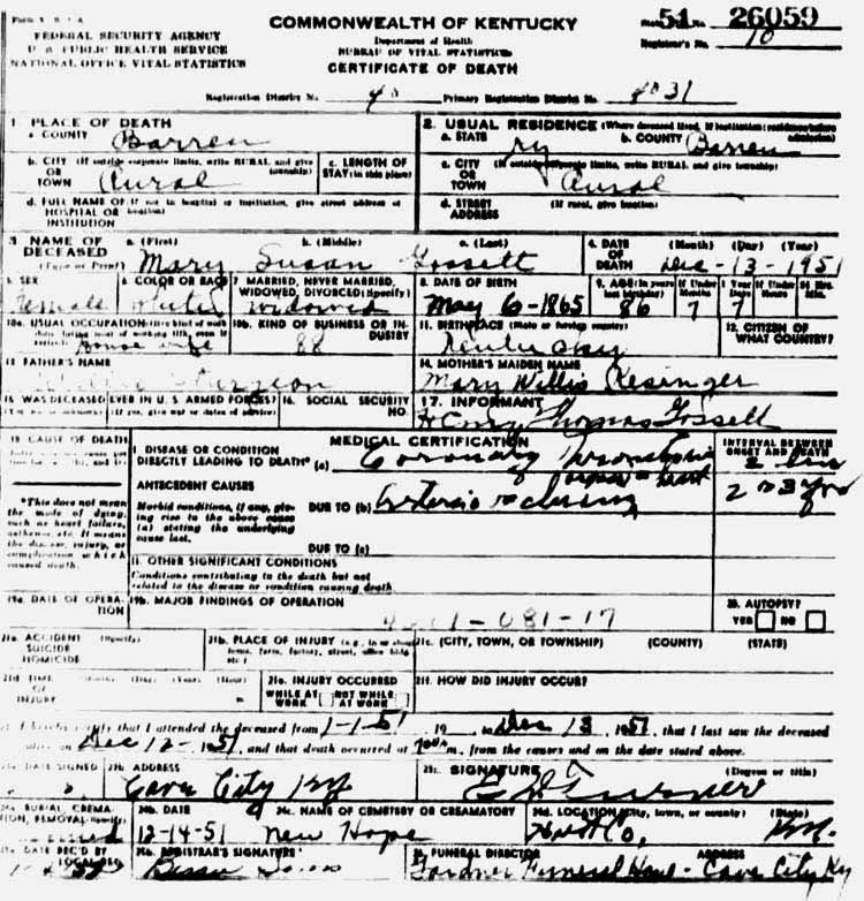 COMMONWEALTH OF KENTUCKY
51 26059
FEDERAL SECURITY AGENCY
U S PUBLIC HEALTH SERVICE
NATIONAL OFFICE VITAL STATISTICS
Department of Health
BUREAU OF VITAL STATISTICS
CERTIFICATE OF DEATH
Registrar's No. 10
Registration District No. 40 Primary Registration District No. 4031
1 PLACE OF DEATH
a COUNTY Barren
2. USUAL RESIDENCE (Where deceased lived. If institution: residence before admission)
a. STATE Ky b. COUNTY Barren
b. CITY (If outside corporate limits, write RURAL and give township) OR TOWN Rural
c. LENGTH OF STAY (in this place)
c. CITY (If outside corporate limits, write RURAL and give township) OR TOWN Rural
d. FULL NAME OF (If not in hospital or institution, give street address or location) HOSPITAL OR INSTITUTION
d. STREET ADDRESS (If rural, give location)
3 NAME OF DECEASED (Type or Print) a. (First) b. (Middle) c. (Last)
Mary Susan Gossett
4. DATE OF DEATH (Month) (Day) (Year)
Dec-13-1951
5 SEX Female
6 COLOR OR RACE White
7 MARRIED, NEVER MARRIED, WIDOWED, DIVORCED (Specify) Widowed
8. DATE OF BIRTH May 6-1865
9. AGE (In years last birthday) 86 If Under 1 Year Months 7 Days 7 If Under 24 Hrs. Hours Min.
10a. USUAL OCCUPATION House wife
10b. KIND OF BUSINESS OR INDUSTRY 88
11. BIRTHPLACE (State or foreign country) Kentucky
12. CITIZEN OF WHAT COUNTRY?
13 FATHER'S NAME
14. MOTHER'S MAIDEN NAME Mary Willis Resinger
15 WAS DECEASED EVER IN U. S. ARMED FORCES? (If yes, give war or dates of service)
16. SOCIAL SECURITY NO.
17. INFORMANT Henry Thomas Gossett
18 CAUSE OF DEATH
MEDICAL CERTIFICATION
INTERVAL BETWEEN ONSET AND DEATH
I DISEASE OR CONDITION DIRECTLY LEADING TO DEATH* (a) Coronary
*This does not mean the mode of dying, such as heart failure, asthenia, etc. It means the disease, injury, or complication which caused death.
ANTECEDENT CAUSES
Morbid conditions, if any, giving rise to the above cause (a) stating the underlying cause last.
DUE TO (b)
2 or 3 yrs
DUE TO (c)
II. OTHER SIGNIFICANT CONDITIONS
Conditions contributing to the death but not related to the disease or condition causing death
19a. DATE OF OPERATION
19b. MAJOR FINDINGS OF OPERATION
20. AUTOPSY? YES NO
21a. ACCIDENT SUICIDE HOMICIDE (Specify)
21b. PLACE OF INJURY (e.g., in or about home, farm, factory, street, office bldg., etc.)
21c. (CITY, TOWN, OR TOWNSHIP) (COUNTY) (STATE)
21d. TIME OF INJURY (Month) (Day) (Year) (Hour)
21e. INJURY OCCURRED WHILE AT WORK NOT WHILE AT WORK
21f. HOW DID INJURY OCCUR?
I hereby certify that I attended the deceased from 1-1-51, 19 to Dec 13, 1951, that I last saw the deceased
alive on Dec 12-1951, and that death occurred at m., from the causes and on the date stated above.
DATE SIGNED
23b. ADDRESS Cave City Ky
23c. SIGNATURE (Degree or title)
24a. BURIAL, CREMATION, REMOVAL (Specify)
24b. DATE 12-14-51
24c. NAME OF CEMETERY OR CREMATORY New Hope
24d. LOCATION (City, town, or county) (State) Hart Co, Ky.
DATE REC'D BY LOCAL REG.
REGISTRAR'S SIGNATURE
FUNERAL DIRECTOR ADDRESS
Gardner Funeral Home - Cave City Ky